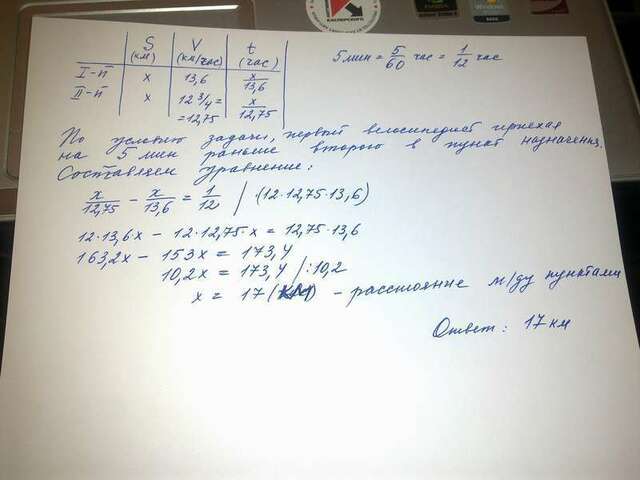 КАСПЕРСКОГО
S (км) V (км/час) t (час)
I-й x 13,6 x/13,6
II-й x 12 3/4 = =12,75 x/12,75
5 мин = 5/60 час = 1/12 час
По условию задачи, первый велосипедист приехал
на 5 мин раньше второго в пункт назначения.
Составляем уравнение:
x/12,75 - x/13,6 = 1/12 | (12·12,75·13,6)
12·13,6x - 12·12,75·x = 12,75·13,6
163,2x - 153x = 173,4
10,2x = 173,4 /:10,2
x = 17 (км) - расстояние м/ду пунктами
Ответ: 17 км